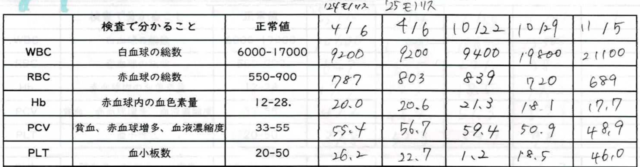 '24モノリス '25モノリス
検査で分かること 正常値 4/6 4/6 10/22 10/29 11/5
WBC 白血球の総数 6000-17000 9200 9200 9400 19800 21100
RBC 赤血球の総数 550-900 787 803 839 720 689
Hb 赤血球内の血色素量 12-28. 20.0 20.6 21.3 18.1 17.7
PCV 貧血、赤血球増多、血液濃縮度 33-55 55.4 56.7 59.4 50.9 48.9
PLT 血小板数 20-50 26.2 22.7 1.2 18.5 46.0